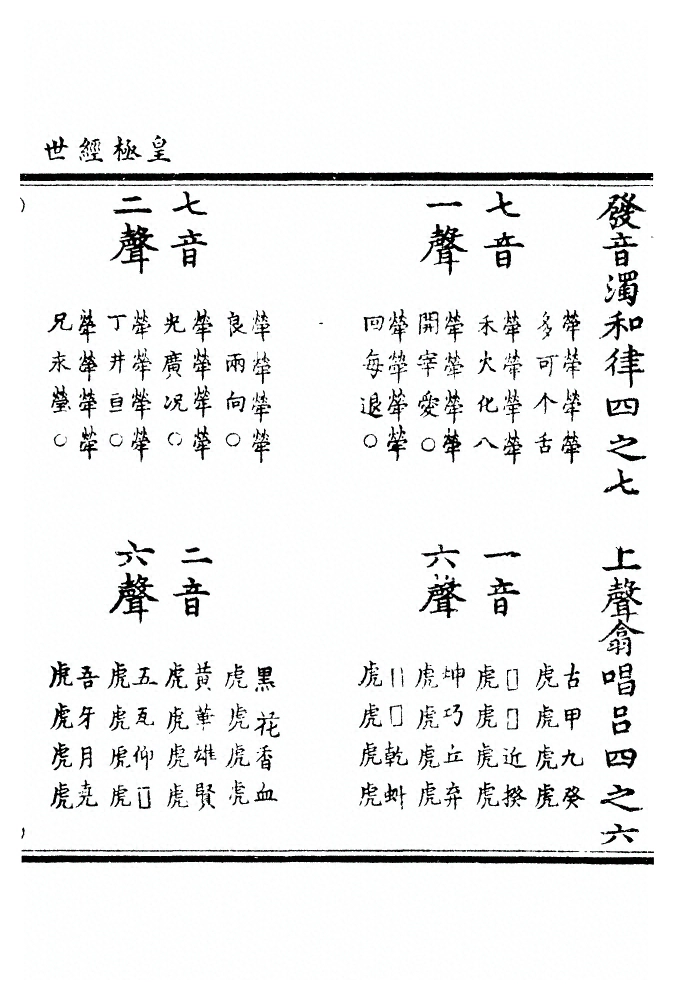 皇極經世
發音濁和律四之七
七音
一聲
犖犖犖犖
多可个舌
犖犖犖犖
禾火化八
犖犖犖犖
開宰愛○
犖犖犖犖
回每退○
七音
二聲
犖犖犖犖
良兩向○
犖犖犖犖
光廣况○
犖犖犖犖
丁井亘○
犖犖犖犖
兄永瑩○
上聲翕唱呂四之六
一音
六聲
古甲九癸
虎虎虎虎
□□近揆
虎虎虎虎
坤巧丘弃
虎虎虎虎
□□乾虯
虎虎虎虎
二音
六聲
黑花香血
虎虎虎虎
黃華雄賢
虎虎虎虎
五瓦仰□
虎虎虎虎
吾牙月堯
虎虎虎虎